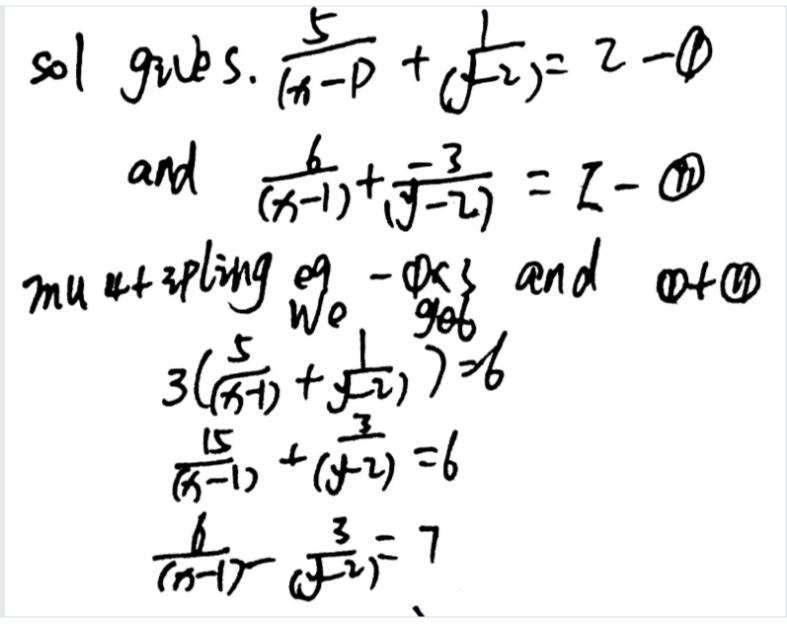 sol gives. 5/(x-1) + 1/(y-2) = 2 - ①
and 6/(x-1) + -3/(y-2) = I - ⑪
mu 4t ipling eq - ①×3 and ①+⑪
We get
3(5/(x-1) + 1/(y-2)) = 6
15/(x-1) + 3/(y-2) = 6
6/(x-1) - 3/(y-2) = 7